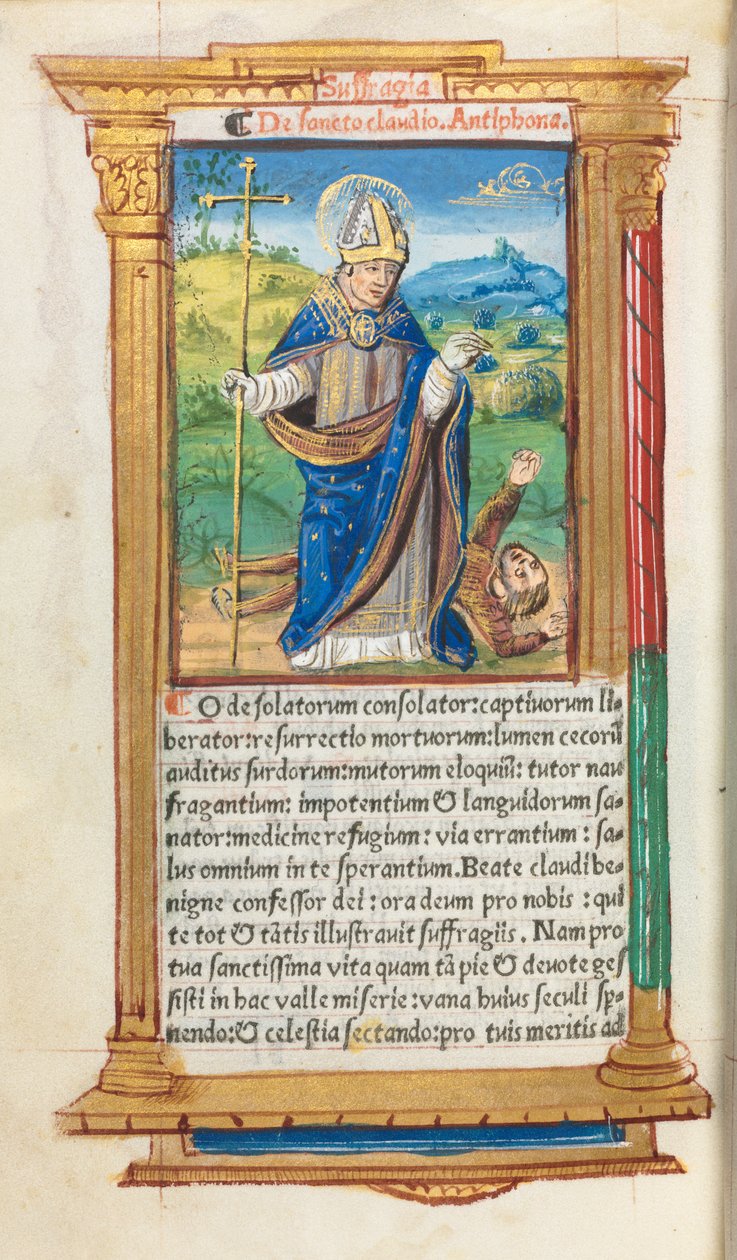 Suffragia
De sancto claudio. Antiphona.
O desolatorum consolator: captiuorum li-
berator: resurrectio mortuorum: lumen cecorū
auditus surdorum: mutorum eloquiū: tutor nau
fragantium: impotentium & languidorum sa-
nator: medicine refugium: via errantium: sa-
lus omnium in te sperantium. Beate claudi be-
nigne confessor dei: ora deum pro nobis: qui
te tot & tātis illustrauit suffragiis. Nam pro
tua sanctissima vita quam tā pie & deuote ges
sisti in hac valle miserie: vana huius seculi sp̄-
nendo: & celestia sectando: pro tuis meritis ad